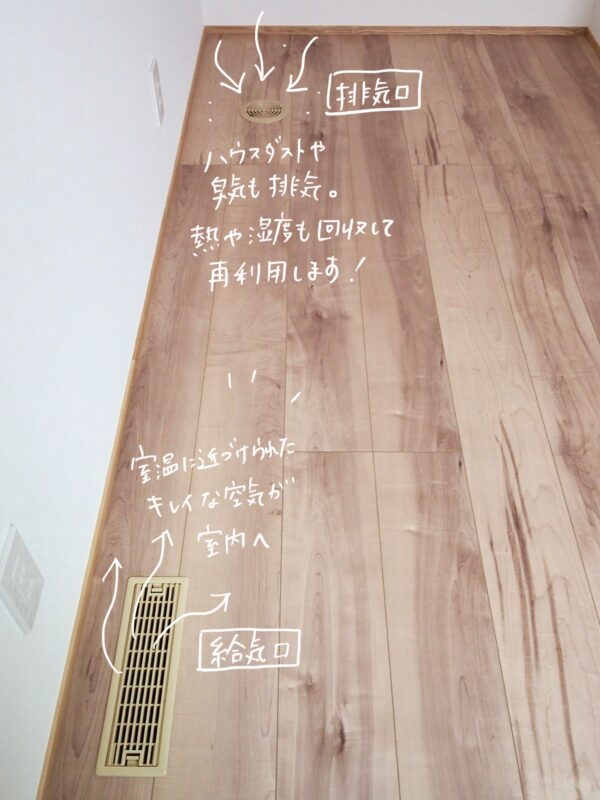 排気口
ハウスダストや
臭気も排気。
熱や湿度も回収して
再利用します!
室温に近づけられた
キレイな空気が
室内へ
給気口